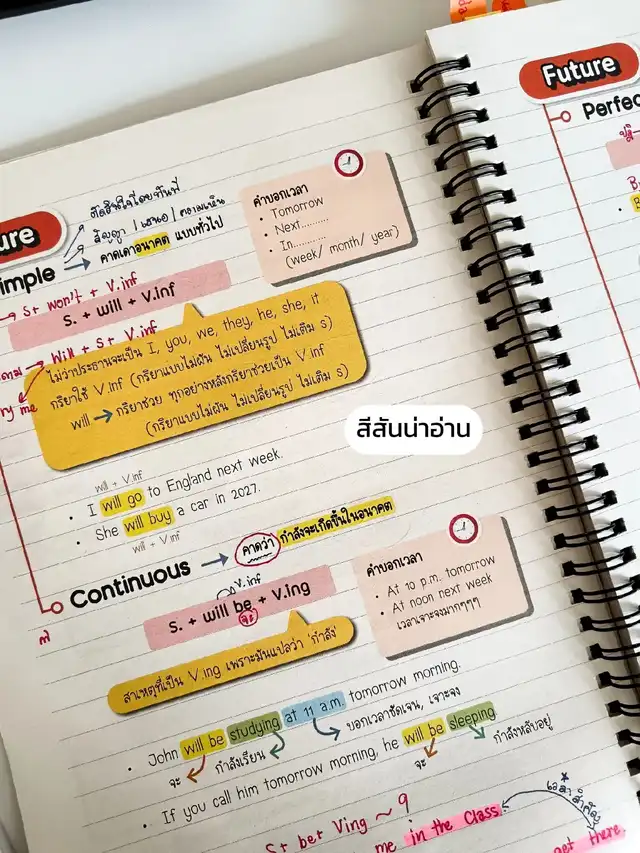 Future
Perfec
ure
imple
ตัดสินใจโดยทันที
สัญญา / เสนอ / ความเห็น
คาดเดาอนาคต แบบทั่วไป
คำบอกเวลา
• Tomorrow
• Next..........
• In..........
(week/ month/ year)
S+ won't + V.inf
S. + will + V.inf
Will + S + V.inf
ไม่ว่าประธานจะเป็น I, you, we, they, he, she, it
กริยาใช้ V.inf (กริยาแบบไม่ผัน ไม่เปลี่ยนรูป ไม่เติม s)
will → กริยาช่วย ทุกอย่างหลังกริยาช่วยเป็น V.inf
(กริยาแบบไม่ผัน ไม่เปลี่ยนรูป ไม่เติม s)
สีสันน่าอ่าน
will + V.inf
• I will go to England next week.
• She will buy a car in 2027.
will + V.inf
Continuous → คาดว่า กำลังจะเกิดขึ้นในอนาคต
V.inf
S. + will be + V.ing
จะ
คำบอกเวลา
• At 10 p.m. tomorrow
• At noon next week
เวลาเจาะจงมากๆๆๆ
สาเหตุที่เป็น V.ing เพราะมันแปลว่า 'กำลัง'
• John will be studying at 11 a.m. tomorrow morning.
จะ กำลังเรียน บอกเวลาชัดเจน, เจาะจง
• If you call him tomorrow morning, he will be sleeping
จะ กำลังหลับอยู่
me in the Class
get there